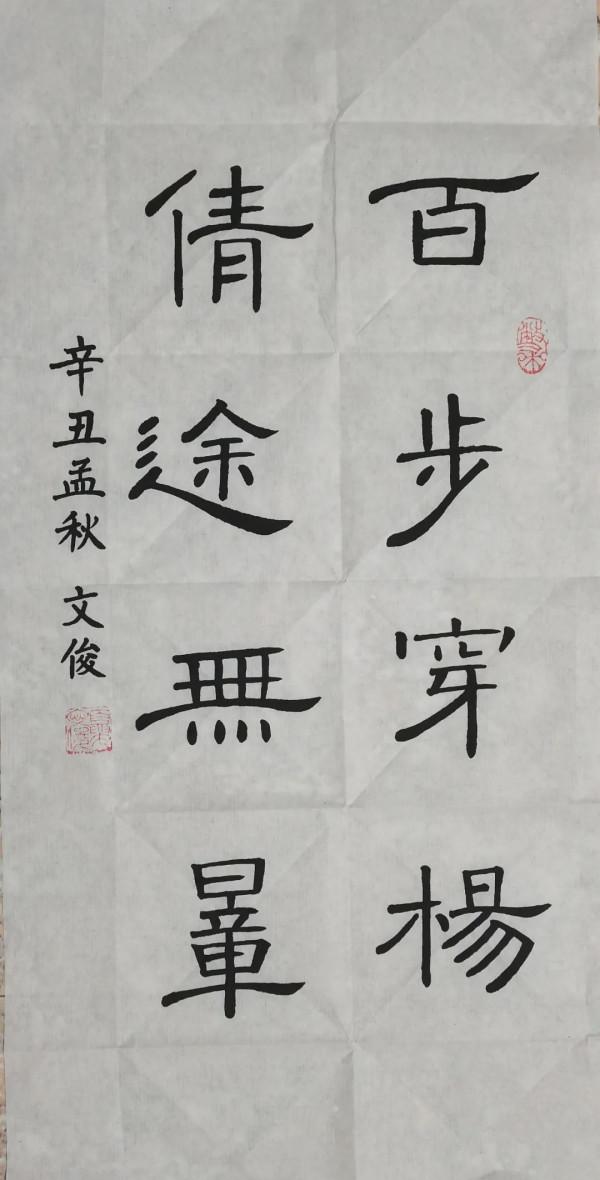 百步穿楊
倩途無量
辛丑孟秋 文俊